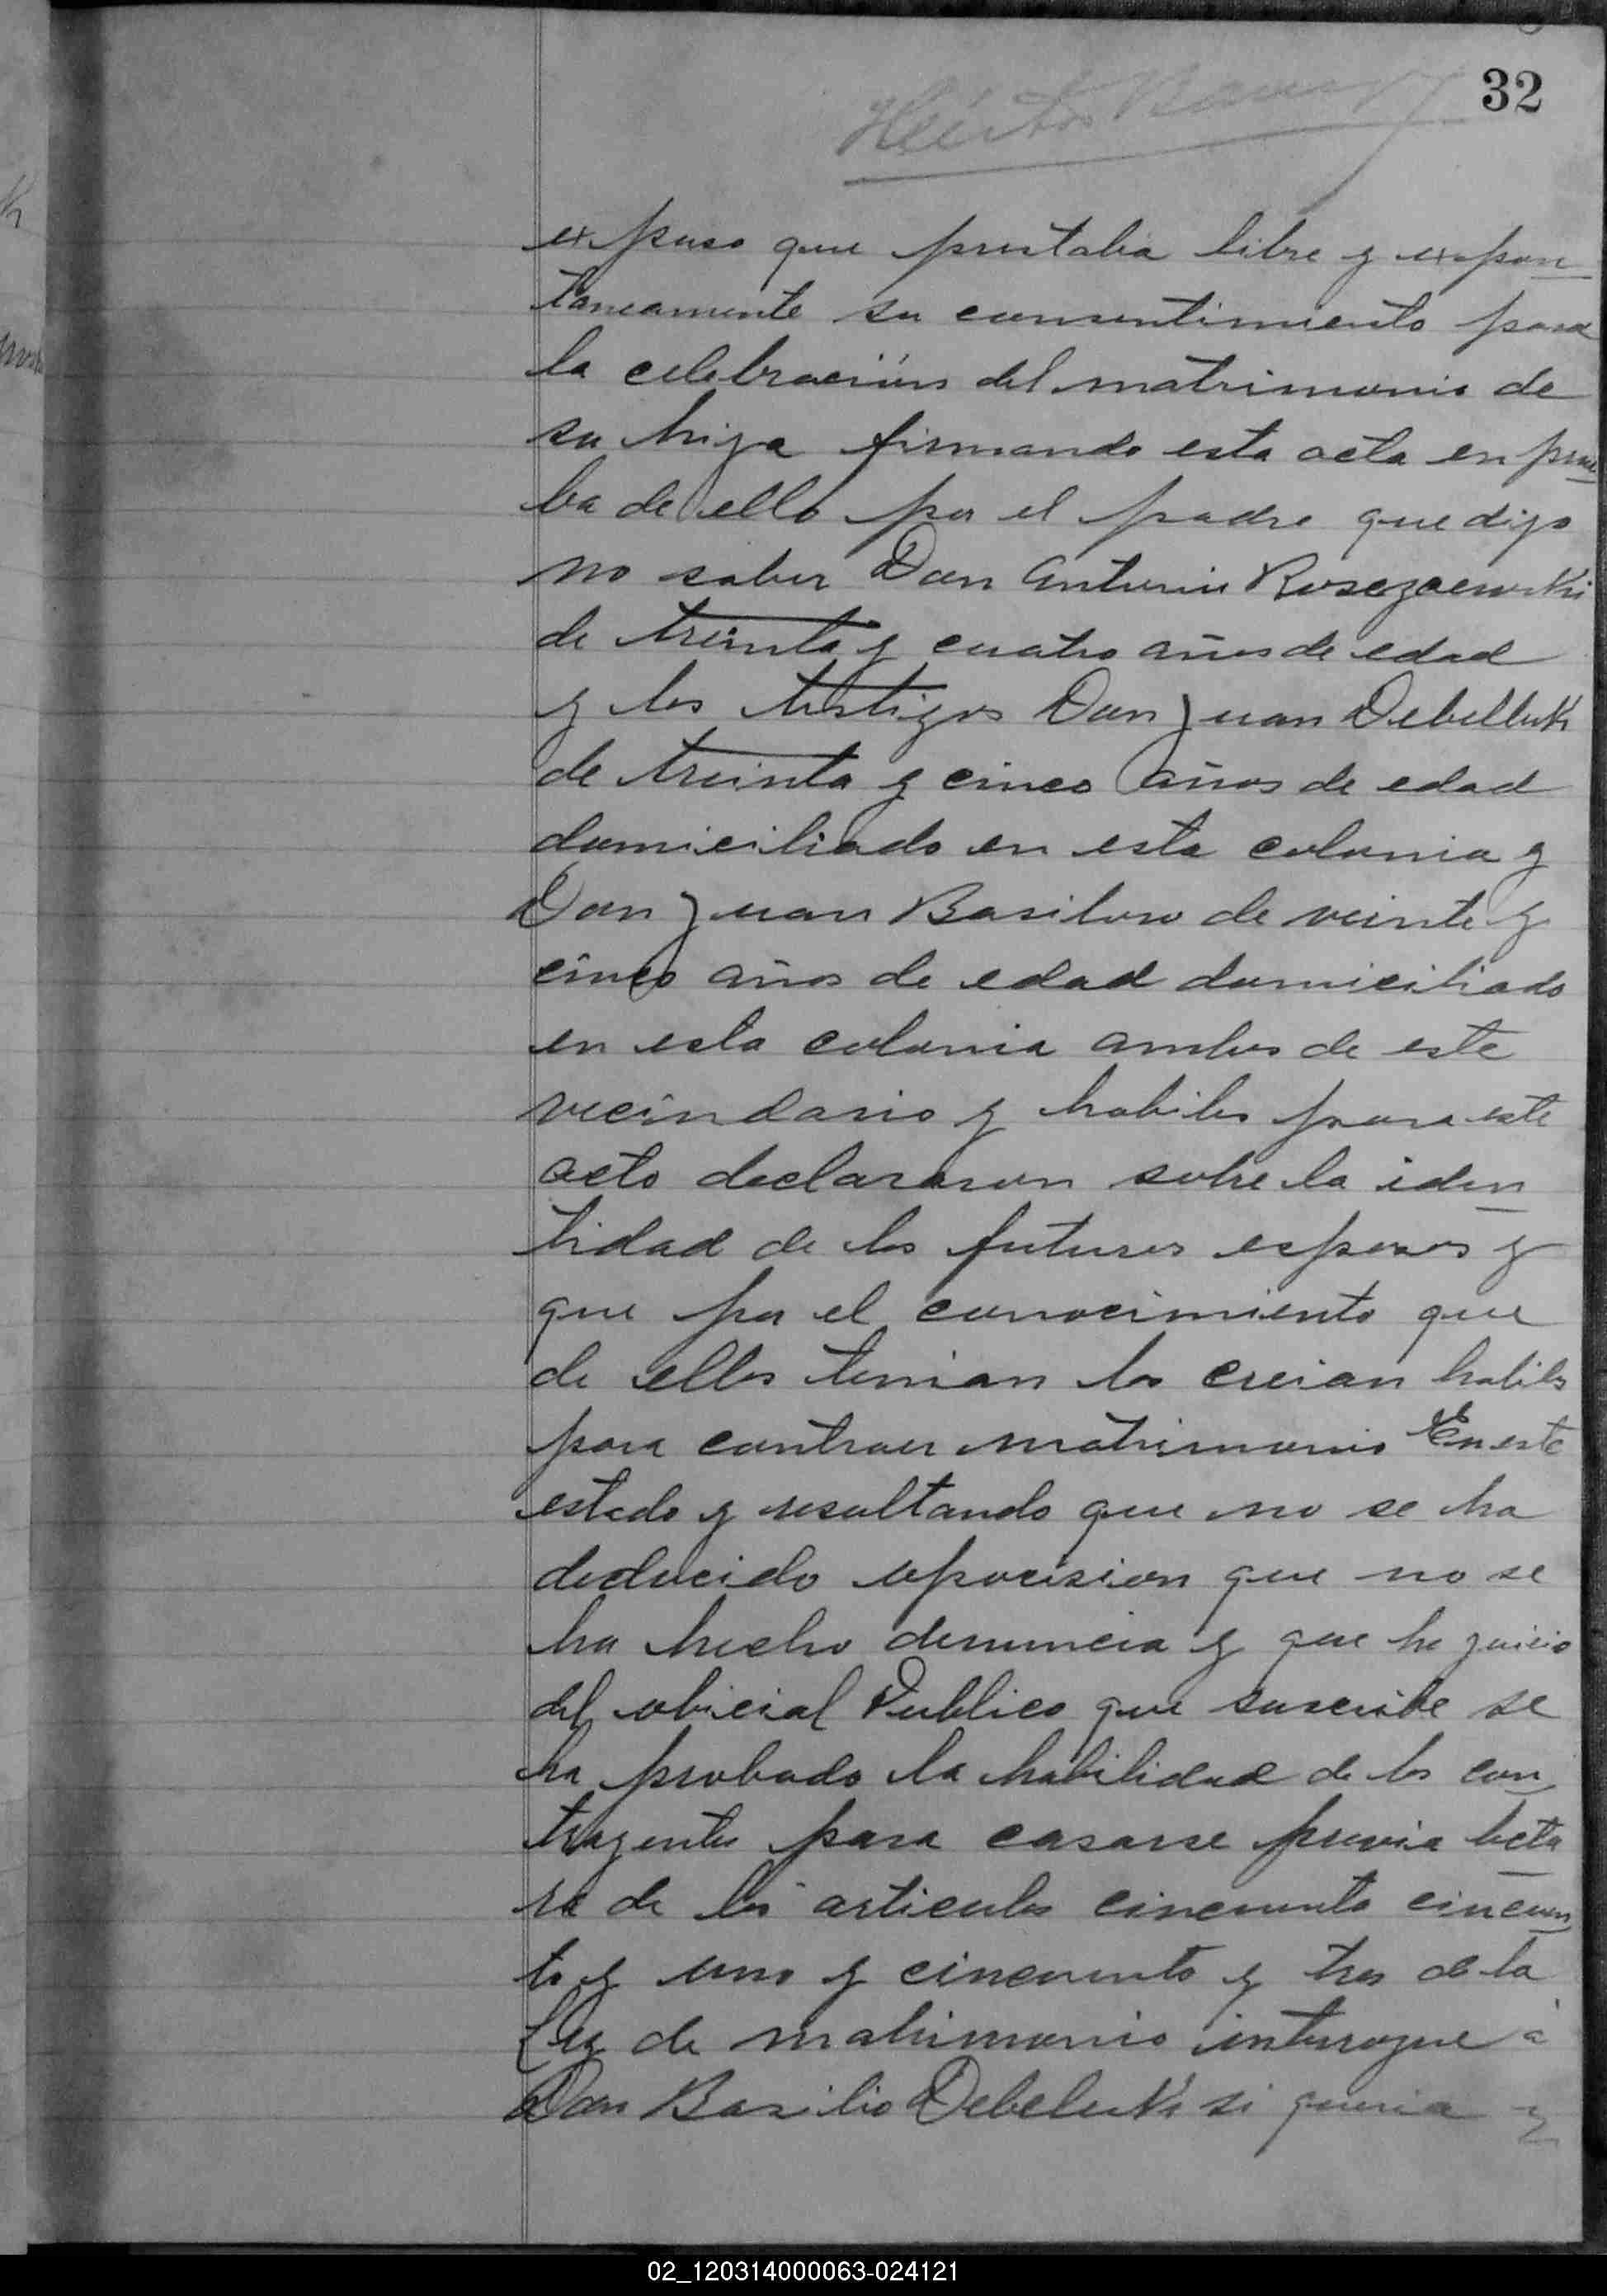 32
Héctor
expuso que prestaba libre y expon
taneamente su consentimiento para
la celebración del matrimonio de
su hija firmando esta acta en prue
ba de ello por el padre que dijo
no saber Don Antonio Rosczaewski
de treinta y cuatro años de edad
y los testigos Don Juan Debelluk
de treinta y cinco años de edad
domiciliado en esta colonia y
Don Juan Basiluw de veinte y
cinco años de edad domiciliado
en esta colonia ambos de este
vecindario y habiles para este
acto declararon sobre la iden
tidad de los futuros esposos y
que por el conocimiento que
de ellos tenian los creian habiles
para contraer matrimonio En este
estado y resultando que no se ha
deducido oposision que no se
ha hecho denuncia y que ha juicio
del obicial Publico que suscribe se
ha probado la habilidad de los con
trayentes para casarse previa lectu
ra de los articulos cincuenta cincuen
ta y uno y cincuenta y tres de la
Ley de matrimonio interrogue á
Don Basilio Debeluk si queria y
02_120314000063-024121